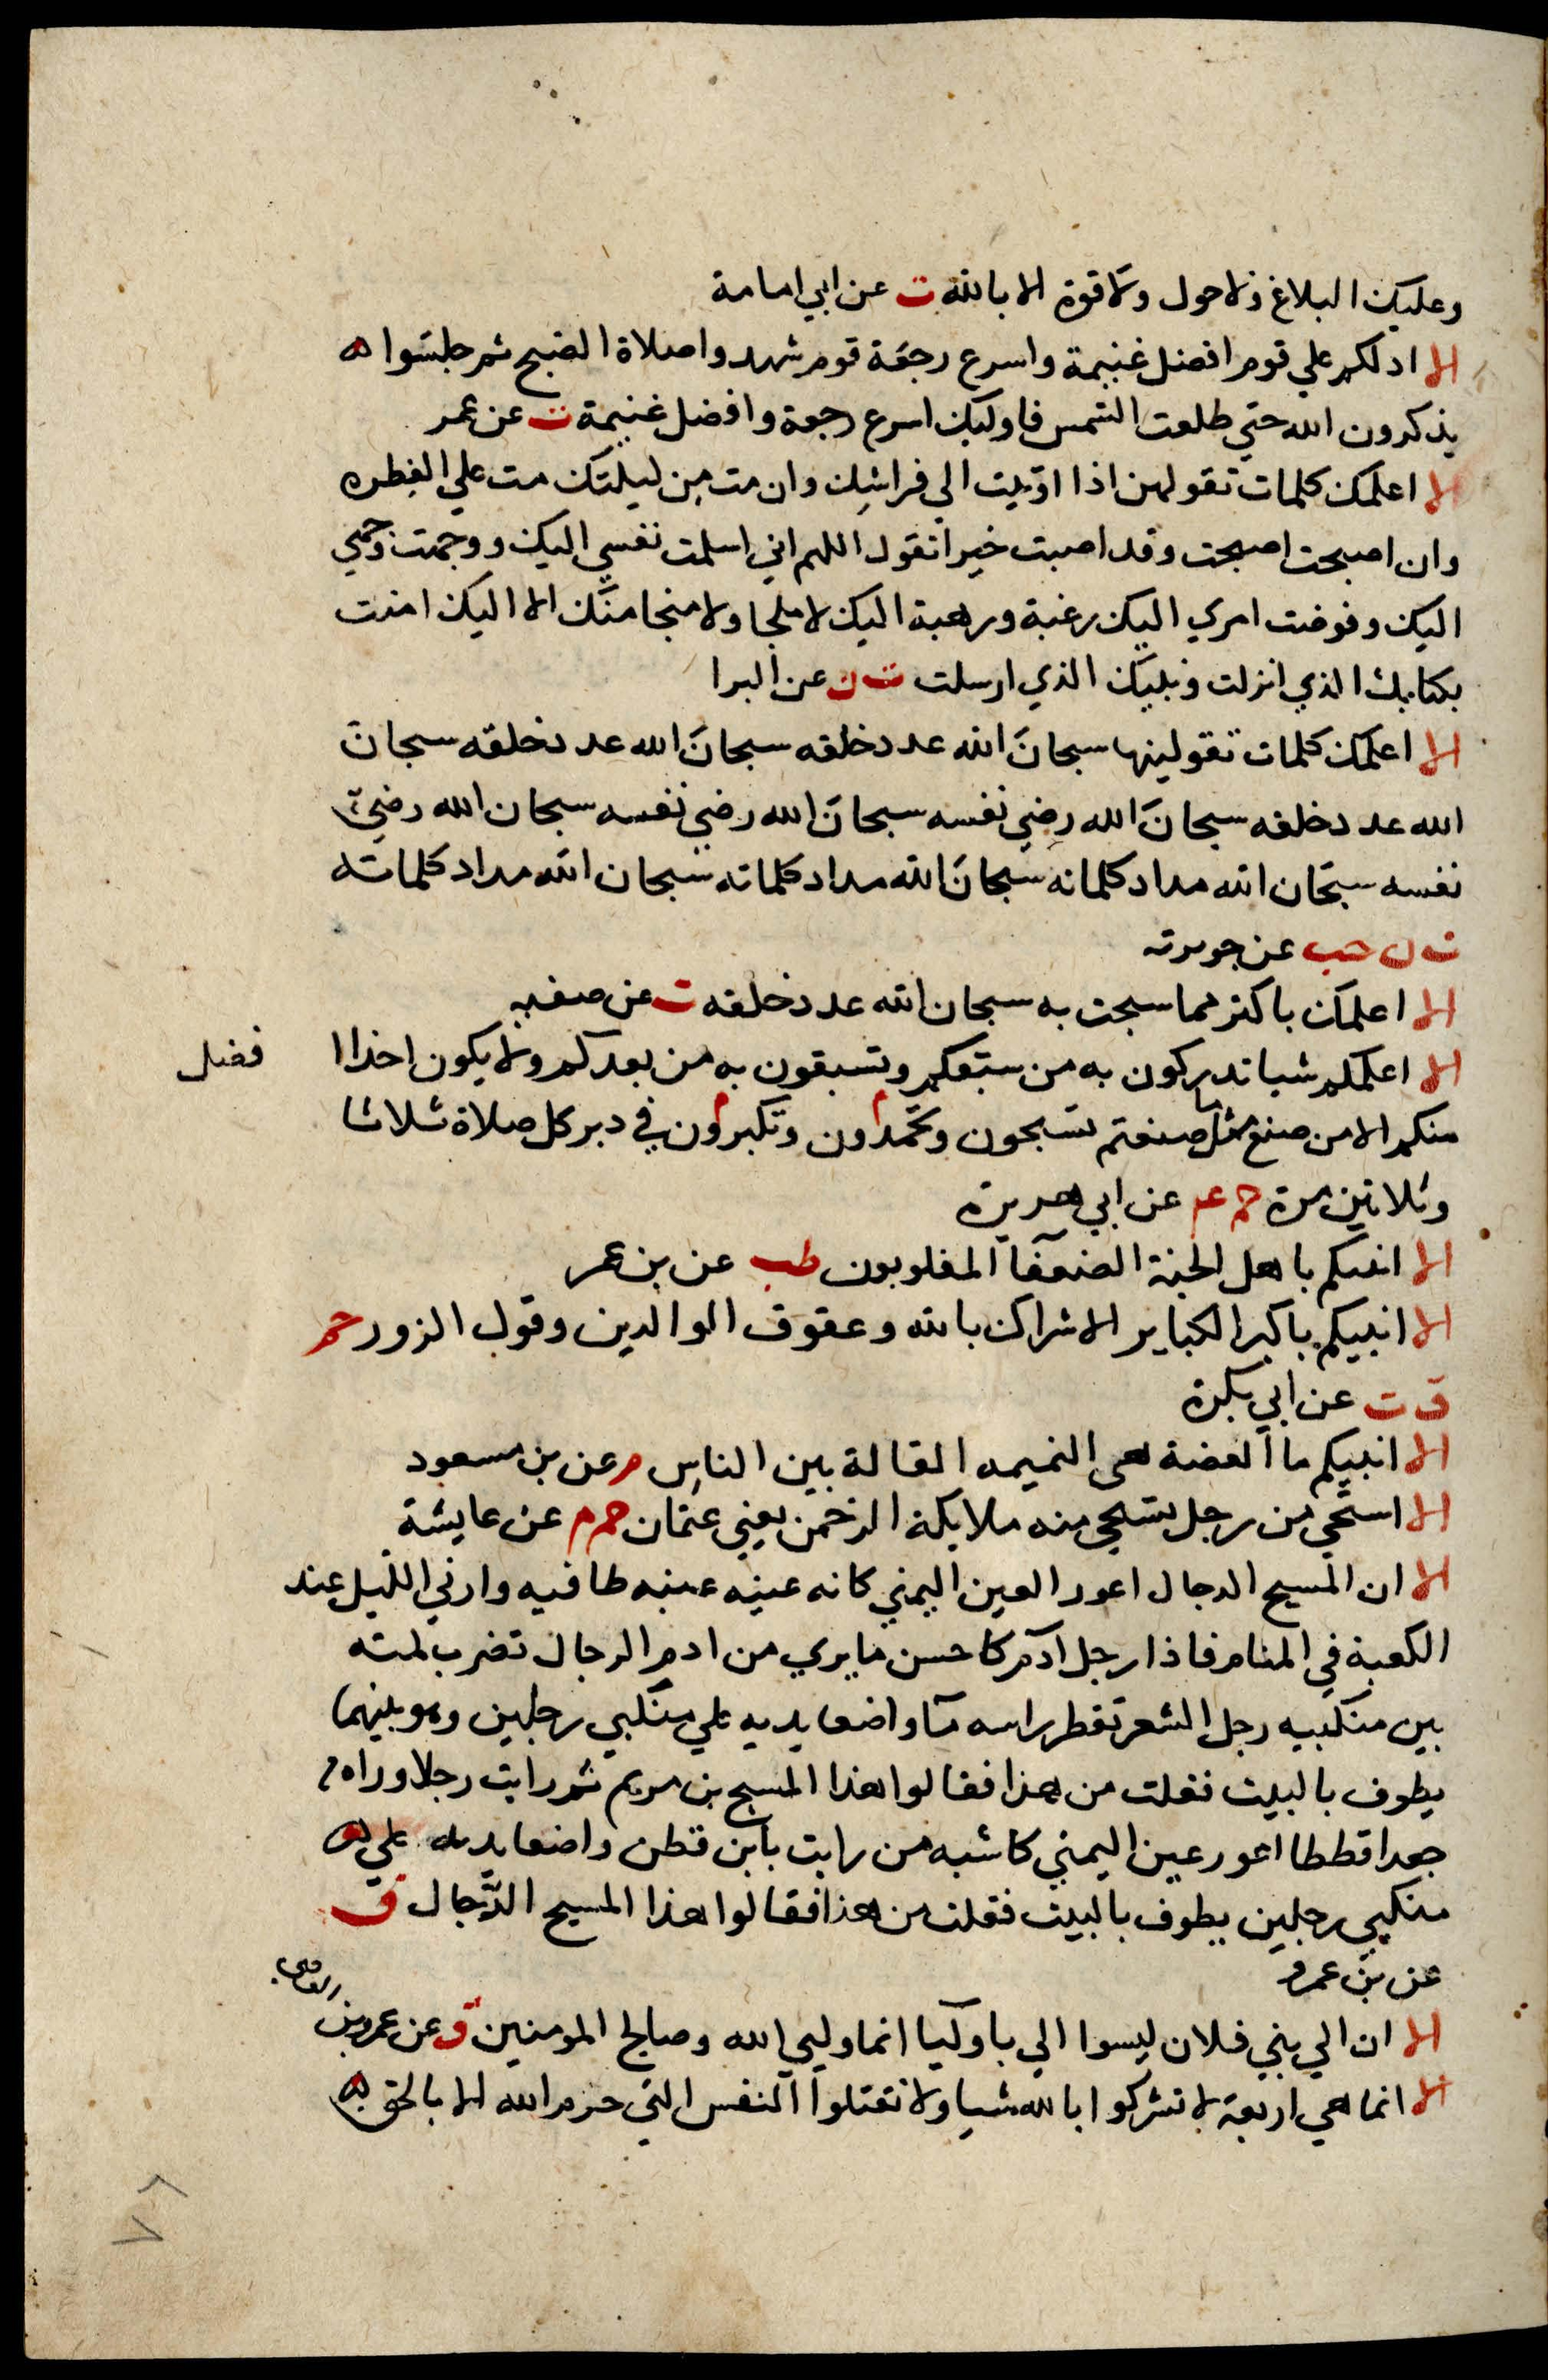 وعليك البلاغ ولا حول ولا قوة الا بالله ت عن ابي امامة
الا ادلكم علي قوم افضل غنيمة واسرع رجعة قوم شهدوا صلاة الصبح ثم جلسوا
يذكرون الله حتي طلعت الشمس فاوليك اسرع رجعة وافضل غنيمة ت عن عمر
الا اعلمك كلمات تقولهن اذا اويت الي فراشك وان مت من ليلتك مت علي الفطره
وان اصبحت اصبحت وقد اصبت خيرا تقول اللهم اني اسلمت نفسي اليك ووجهت وجهي
اليك وفوضت امري اليك رغبة ورهبة اليك لا ملجا ولا منجا منك الا اليك امنت
بكتابك الذي انزلت ونبيك الذي ارسلت ت ن عن البرا
الا اعلمك كلمات تقولينها سبحان الله عدد خلقه سبحان الله عدد خلقه سبحان
الله عدد خلقه سبحان الله رضي نفسه سبحان الله رضي نفسه سبحان الله رضي
نفسه سبحان الله مداد كلماته سبحان الله مداد كلماته سبحان الله مداد كلماته
ت ن حب عن جويرته
الا اعلمك باكثر مما سبحت به سبحان الله عدد خلقه ت عن صفيه
الا اعلمكم شيا تدركون به من سبقكم وتسبقون به من بعدكم ولا يكون احدا ا فضل
منكم الا من صنع مثل ما صنعتم تسبحون وتحمدون وتكبرون في دبر كل صلاة ثلاثا
وثلاثين مرة حم م عن ابي هريرة
الا انبيكم باهل الجنة الضعفا المغلوبون طب عن بن عمر
الا انبيكم باكبر الكباير الاشراك بالله وعقوق الوالدين وقول الزور حم
ق ت عن ابي بكرة
الا انبيكم ما العضة هي النميمه القالة بين الناس م عن بن مسعود
الا استحي من رجل تستحي منه ملايكة الرحمن يعني عثمان حم م عن عايشة
الا ان المسيح الدجال اعور العين اليمني كانه عينه عنبه طافيه وارني الليل عند
الكعبة في المنام فاذا رجل ادم كاحسن ما يري من ادم الرجال تضرب لمته
بين منكبيه رجل الشعر تقطر راسه ما واضعا يديه علي منكبي رجلين وهو بينهما
يطوف بالبيت فقلت من هذا فقالوا هذا المسيح بن مريم ثم رايت رجلا وراه
جعدا قططا اعور عين اليمني كاشبه من رايت بابن قطن واضعا يديه علي
منكبي رجلين يطوف بالبيت فقلت من هذا فقالوا هذا المسيح الدجال ق
عن بن عمرو
الا ان الي بني فلان ليسوا الي باوليا انما وليي الله وصالح المومنين ق عن عمرو بن العاصي
الا انما هي اربعة لا تشركوا بالله شيا ولا تقتلوا النفس التي حرم الله الا بالحق
٧٨